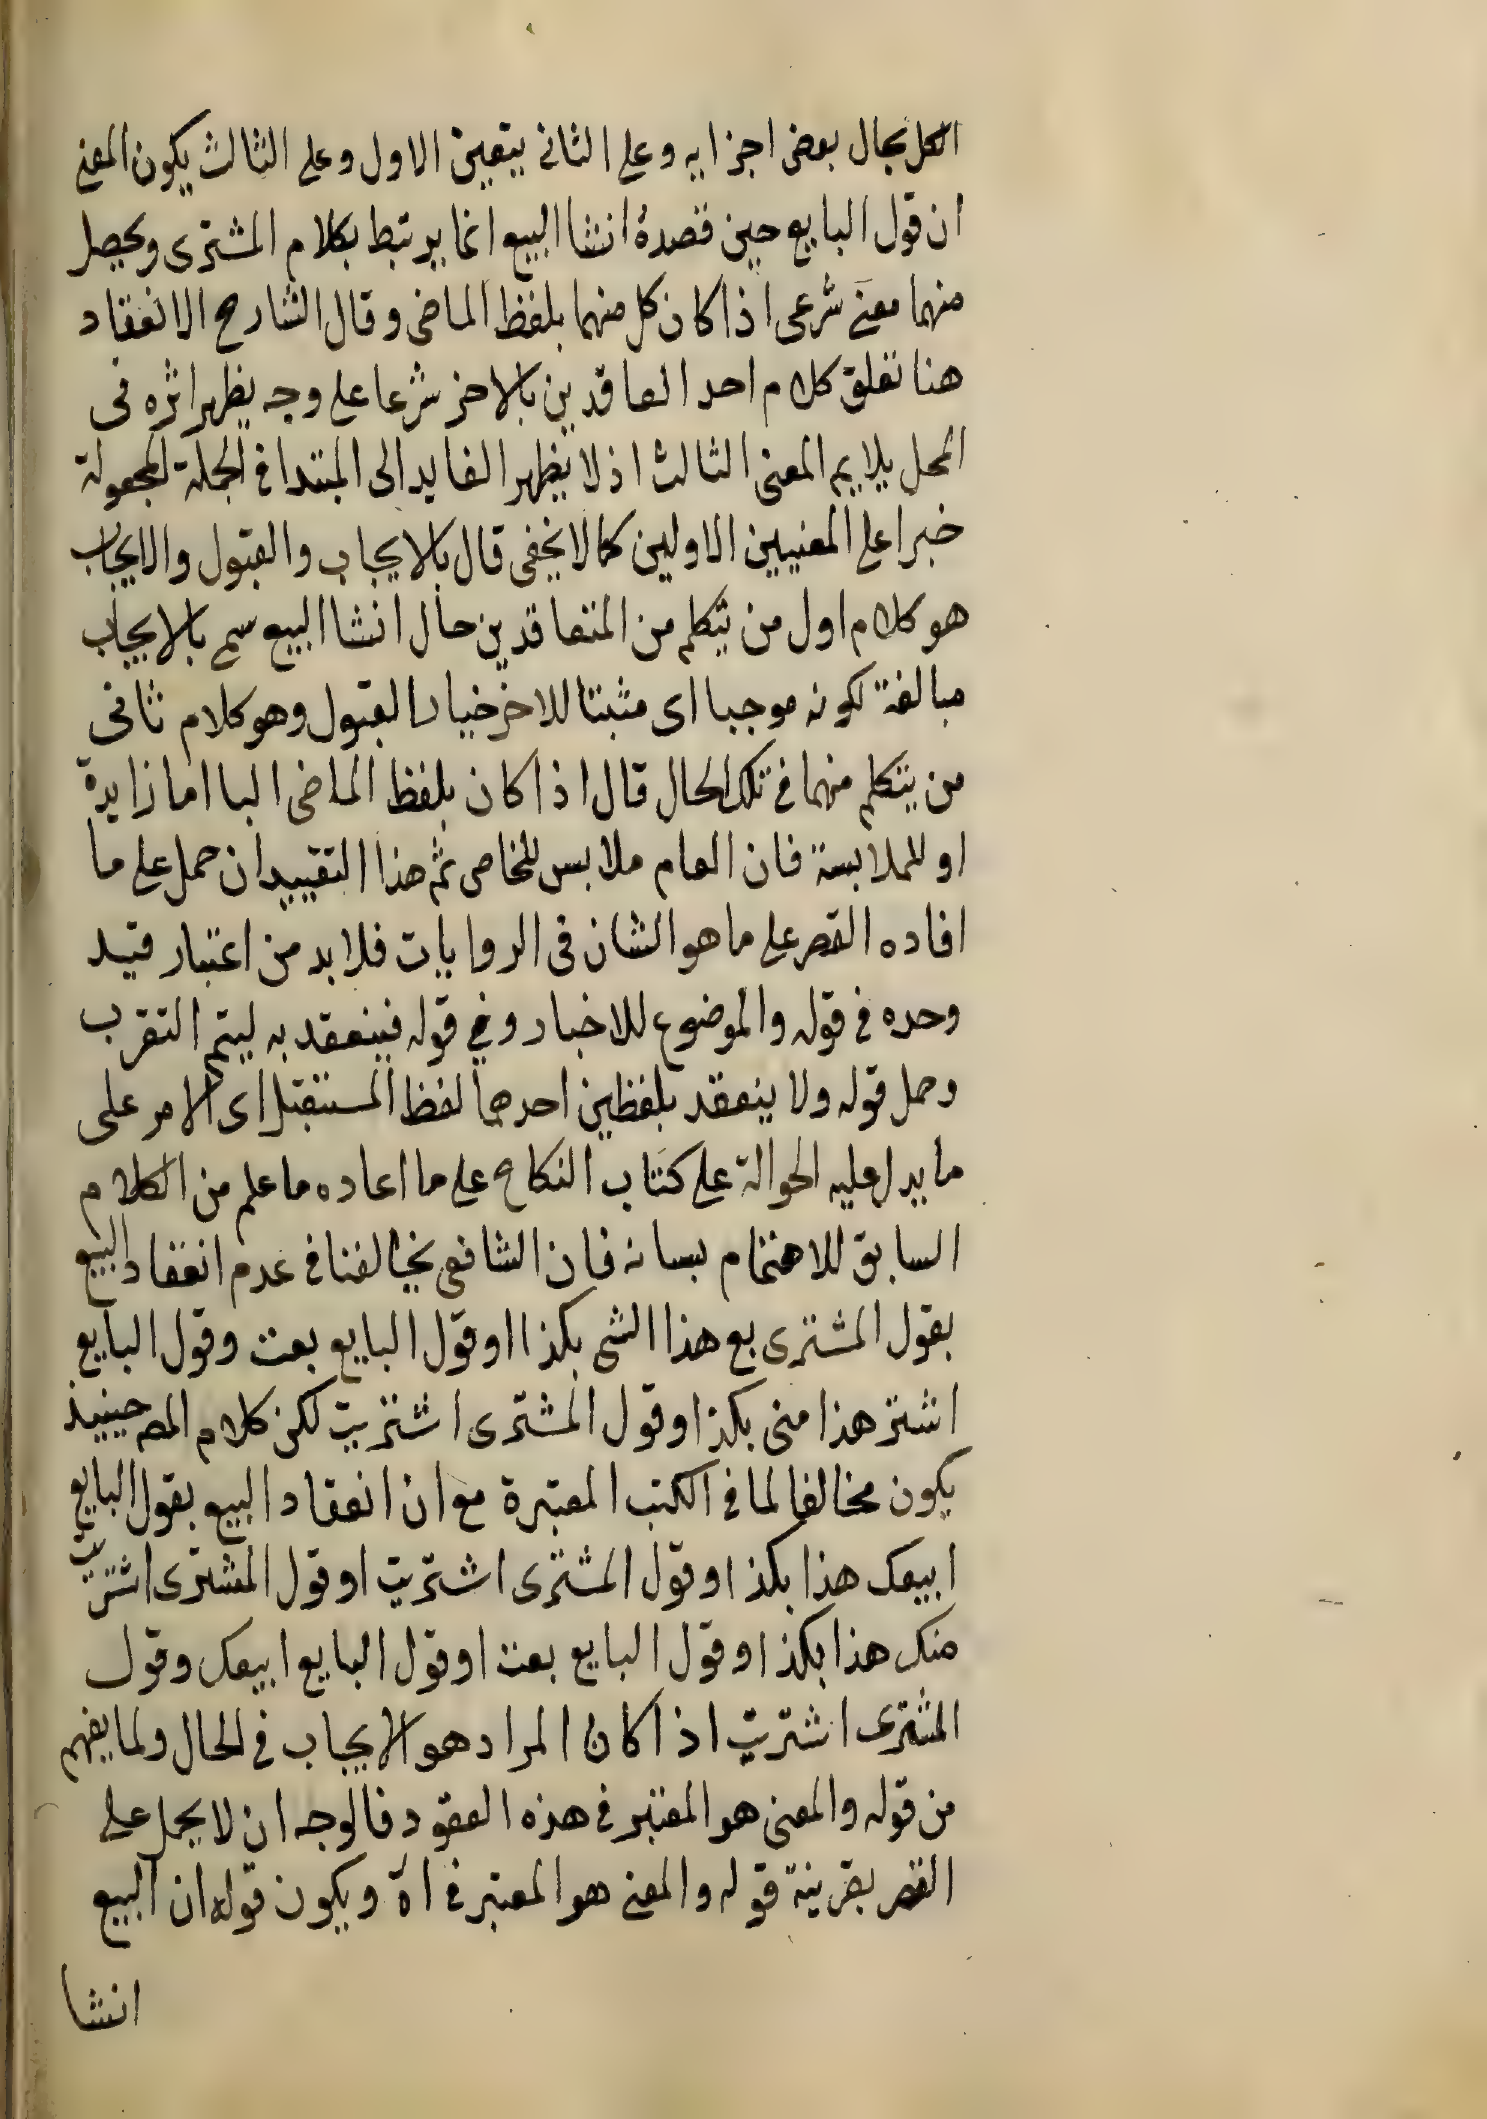 الكل بحال بعض اجزايه وعلى الثانى يتعين الاول وعلى الثالث يكون المعنى
ان قول البايع حين قصده انشا البيع انما يرتبط بكلام المشترى ويحصل
منهما معنى شرعى اذا كان كل منهما بلفظ الماضى وقال الشارح الانعقاد
هنا تعلق كلام احد العاقدين بالاخر شرعا على وجه يظهر اثره فى
المحل يلايم المعنى الثالث اذ لا يظهر العايد الى المبتدا فى الجملة المجعولة
خبرا على المعنيين الاولين كما لا يخفى قال بالايجاب والقبول والايجاب
هو كلام اول من يتكلم من المتعاقدين حال انشا البيع سمى بالايجاب
مبالغة لكونه موجبا اى مثبتا للاخر خيار القبول وهو كلام ثانى
من يتكلم منهما فى تلك الحال قال اذا كان بلفظ الماضى البا اما زايدة
او للملابسة فان العام ملابس للخاص ثم هذا التقييد ان حمل على ما
افاده القصر على ما هو الشان فى الروايات فلا بد من اعتبار قيد
وحده فى قوله والموضوع للاخبار وفى قوله فينعقد به ليتم التقرب
وحمل قوله ولا ينعقد بلفظين احدهما لفظ المستقبل اى الامر على
ما يدل عليه الحوالة على كتاب النكاح على ما اعاده ما علم من الكلام
السابق للاهتمام بسانه فان الشافعى يخالفنا فى عدم انعقاد البيع
بقول المشترى بع هذا الشى بكذا او قول البايع بعت وقول البايع
اشتر هذا منى بكذا وقول المشترى اشتريت لكن كلام المص حينيذ
يكون مخالفا لما فى الكتب المعتبرة مع ان انعقاد البيع بقول البايع
ابيعك هذا بكذا وقول المشترى اشتريت او قول المشترى اشتريت
منك هذا بكذا وقول البايع بعت او قول البايع ابيعك وقول
المشترى اشتريت اذا كان المراد هو الايجاب فى الحال ولما يفهم
من قوله والمعنى هو المعتبر فى هذه العقود فالوجه ان لا يحمل على
القصر بقرينة قوله والمعنى هو المعتبر فى اه ويكون قوله ان البيع
انشا